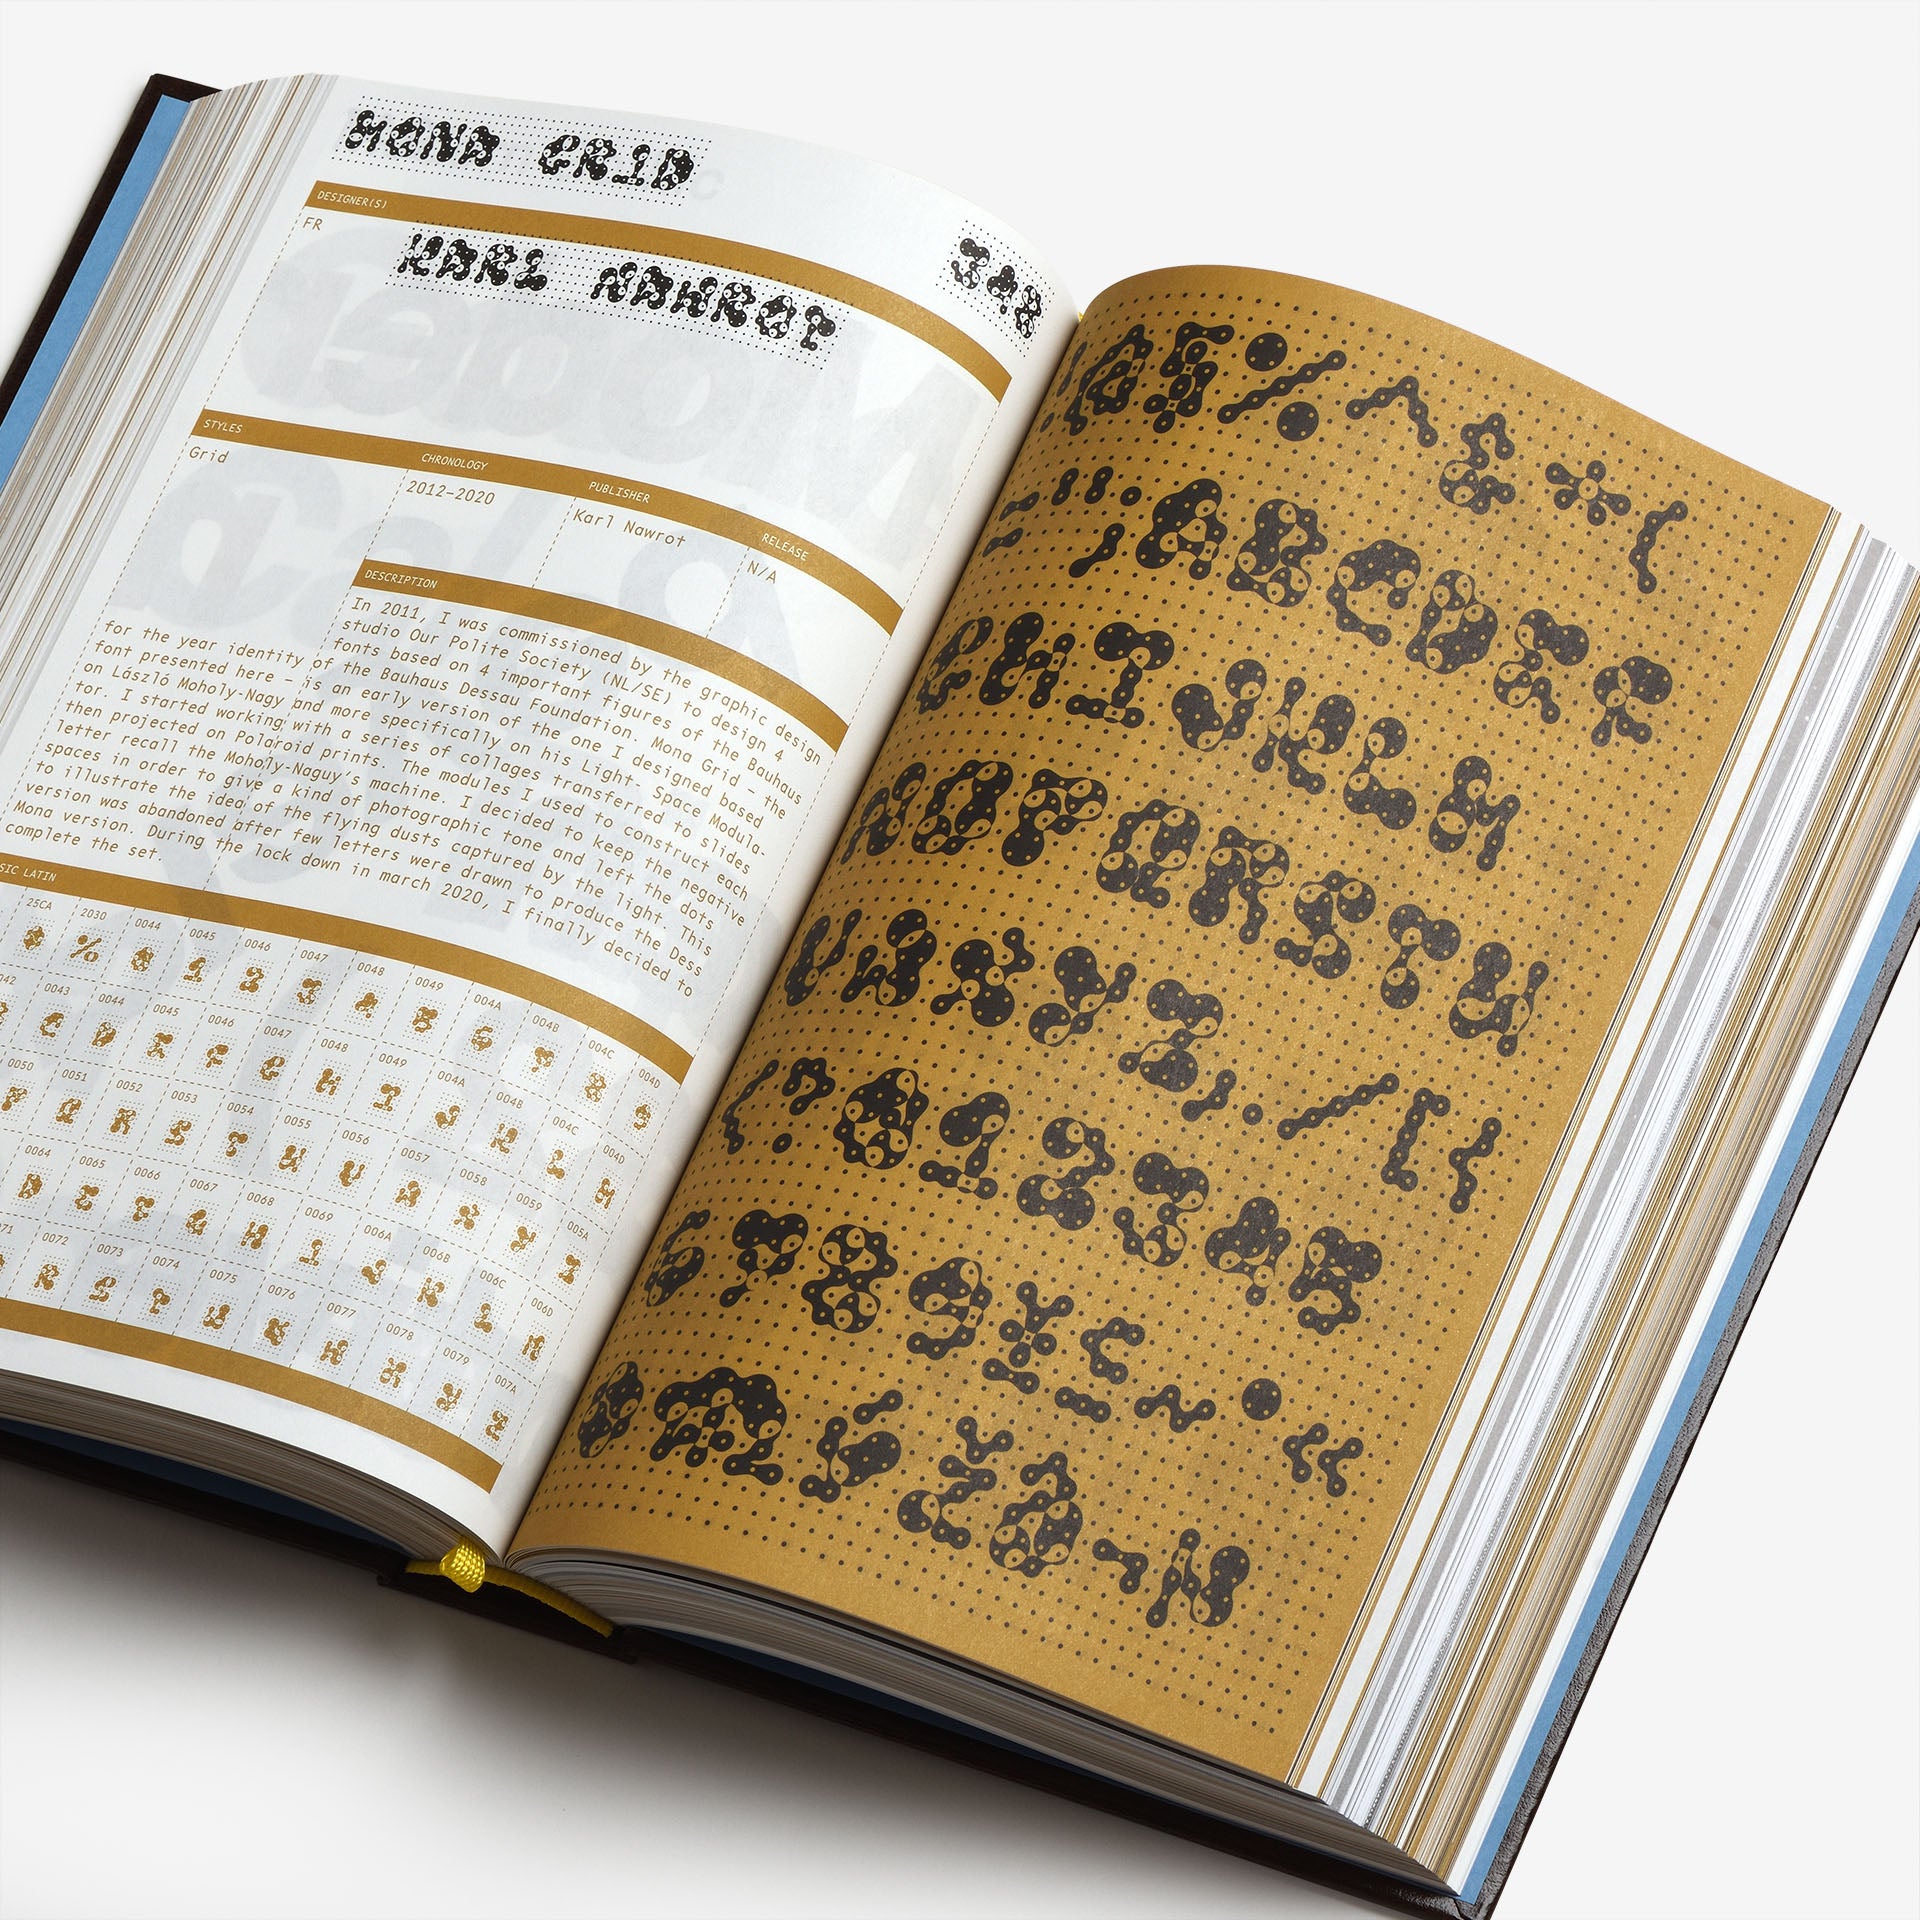 MONA GRID
DESIGNER(S)
FR
KARL NAWROT
348
STYLES
CHRONOLOGY
PUBLISHER
RELEASE
Grid
2012–2020
Karl Nawrot
N/A
DESCRIPTION
In 2011, I was commissioned by the graphic design
studio Our Polite Society (NL/SE) to design 4
fonts based on 4 important figures of the Bauhaus
for the year identity of the Bauhaus Dessau Foundation. Mona Grid – the
font presented here – is an early version of the one I designed based
on László Moholy-Nagy and more specifically on his Light Space Modula-
tor. I started working with a series of collages transferred to slides
then projected on Polaroid prints. The modules I used to construct each
letter recall the Moholy-Naguy's machine. I decided to keep the negative
spaces in order to give a kind of photographic tone and left the dots
to illustrate the idea of the flying dusts captured by the light. This
version was abandoned after few letters were drawn to produce the Dess
Mona version. During the lock down in march 2020, I finally decided to
complete the set.
LATIN
25CA 2030 0044 0045 0046 0047 0048 0049 004A 004B 004C 004D
0043 0044 0045 0046 0047 0048 0049 004A 004B 004C 004D
0050 0051 0052 0053 0054 0055 0056 0057 0058 0059 005A
0064 0065 0066 0067 0068 0069 006A 006B 006C 006D
0072 0073 0074 0075 0076 0077 0078 0079 007A
@$%^&*(
;ABCDEF
GHIJKLM
NOPQRSTU
VWXYZ,./[
?012345
6789¥